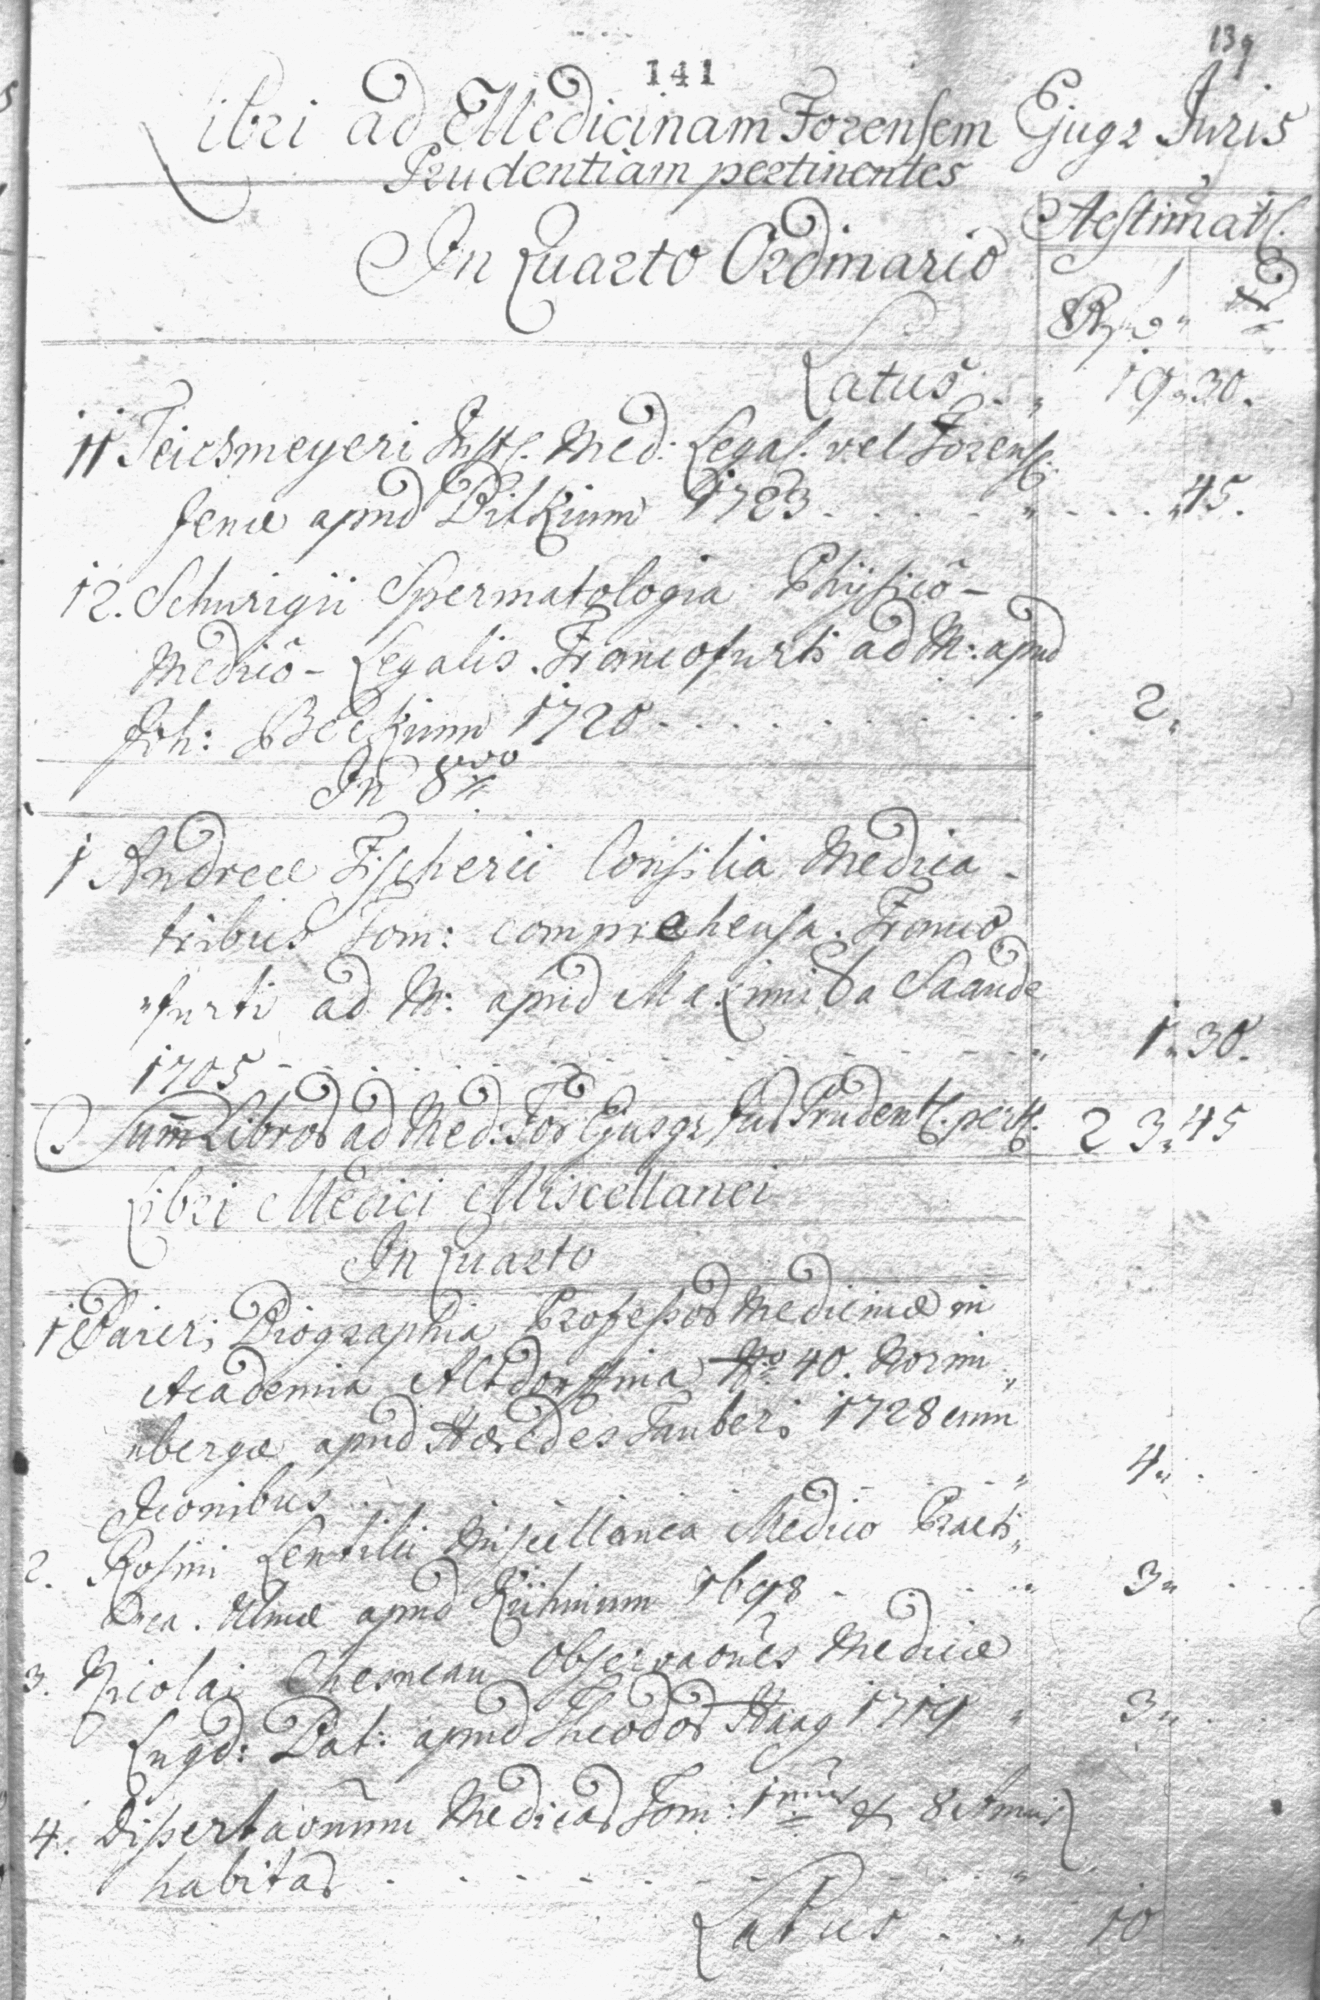 139
141
Libri ad Medicinam Forensem Ejusqz Juris
Prudentiam pertinentes
Aestimatl.
In Quarto Ordinario
Latus . . 19 " 30.
11 Teichmeyeri Instl. Med: Legal. vel Forensl.
Jenæ apud Bilkium 1723 . . . . . . . . " 45.
12. Schurigii Spermatologia Physico -
Medico - Legalis. Francofurti ad M: apud
Joh: Beckium 1720 . . . . . . . . 2 "
In 8vo
1 Andreæ Fischerii Consilia Medica -
tribus Tom: comprehensa. Franco
"furti ad M: apud Maximil: a Saande
1705 . . . . . . . . . 1 " 30.
Suma Libror ad Med: For Ejusqz Jur Prudentl. pertl. 23 " 45
Libri Medici Miscellanei
In Quarto
1 Baieri Biographia Professor Medicinæ in
Academia Altdorffina No 40. Norim "
"bergæ apud Hæredes Tauberi 1728 cum
Iconibus . . . . . 4 " .
2. Rosini Lentilii Miscellanea Medico Practi "
Ulmæ apud Kühnium 1698 . . . . " 3 " . . .
3. Nicolai Chesneau Observaones Medicæ
Lugd: Bat: apud Theodor Haag 1719 " 3 " . . .
4. Dissertaonum Medicar Tom: 1mus & 8
habitar . . . . . . . . .
Latus . . " 10